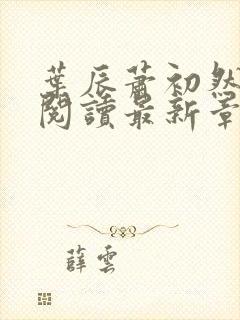 葉辰蕭初然
閱讀最新章
薛雲